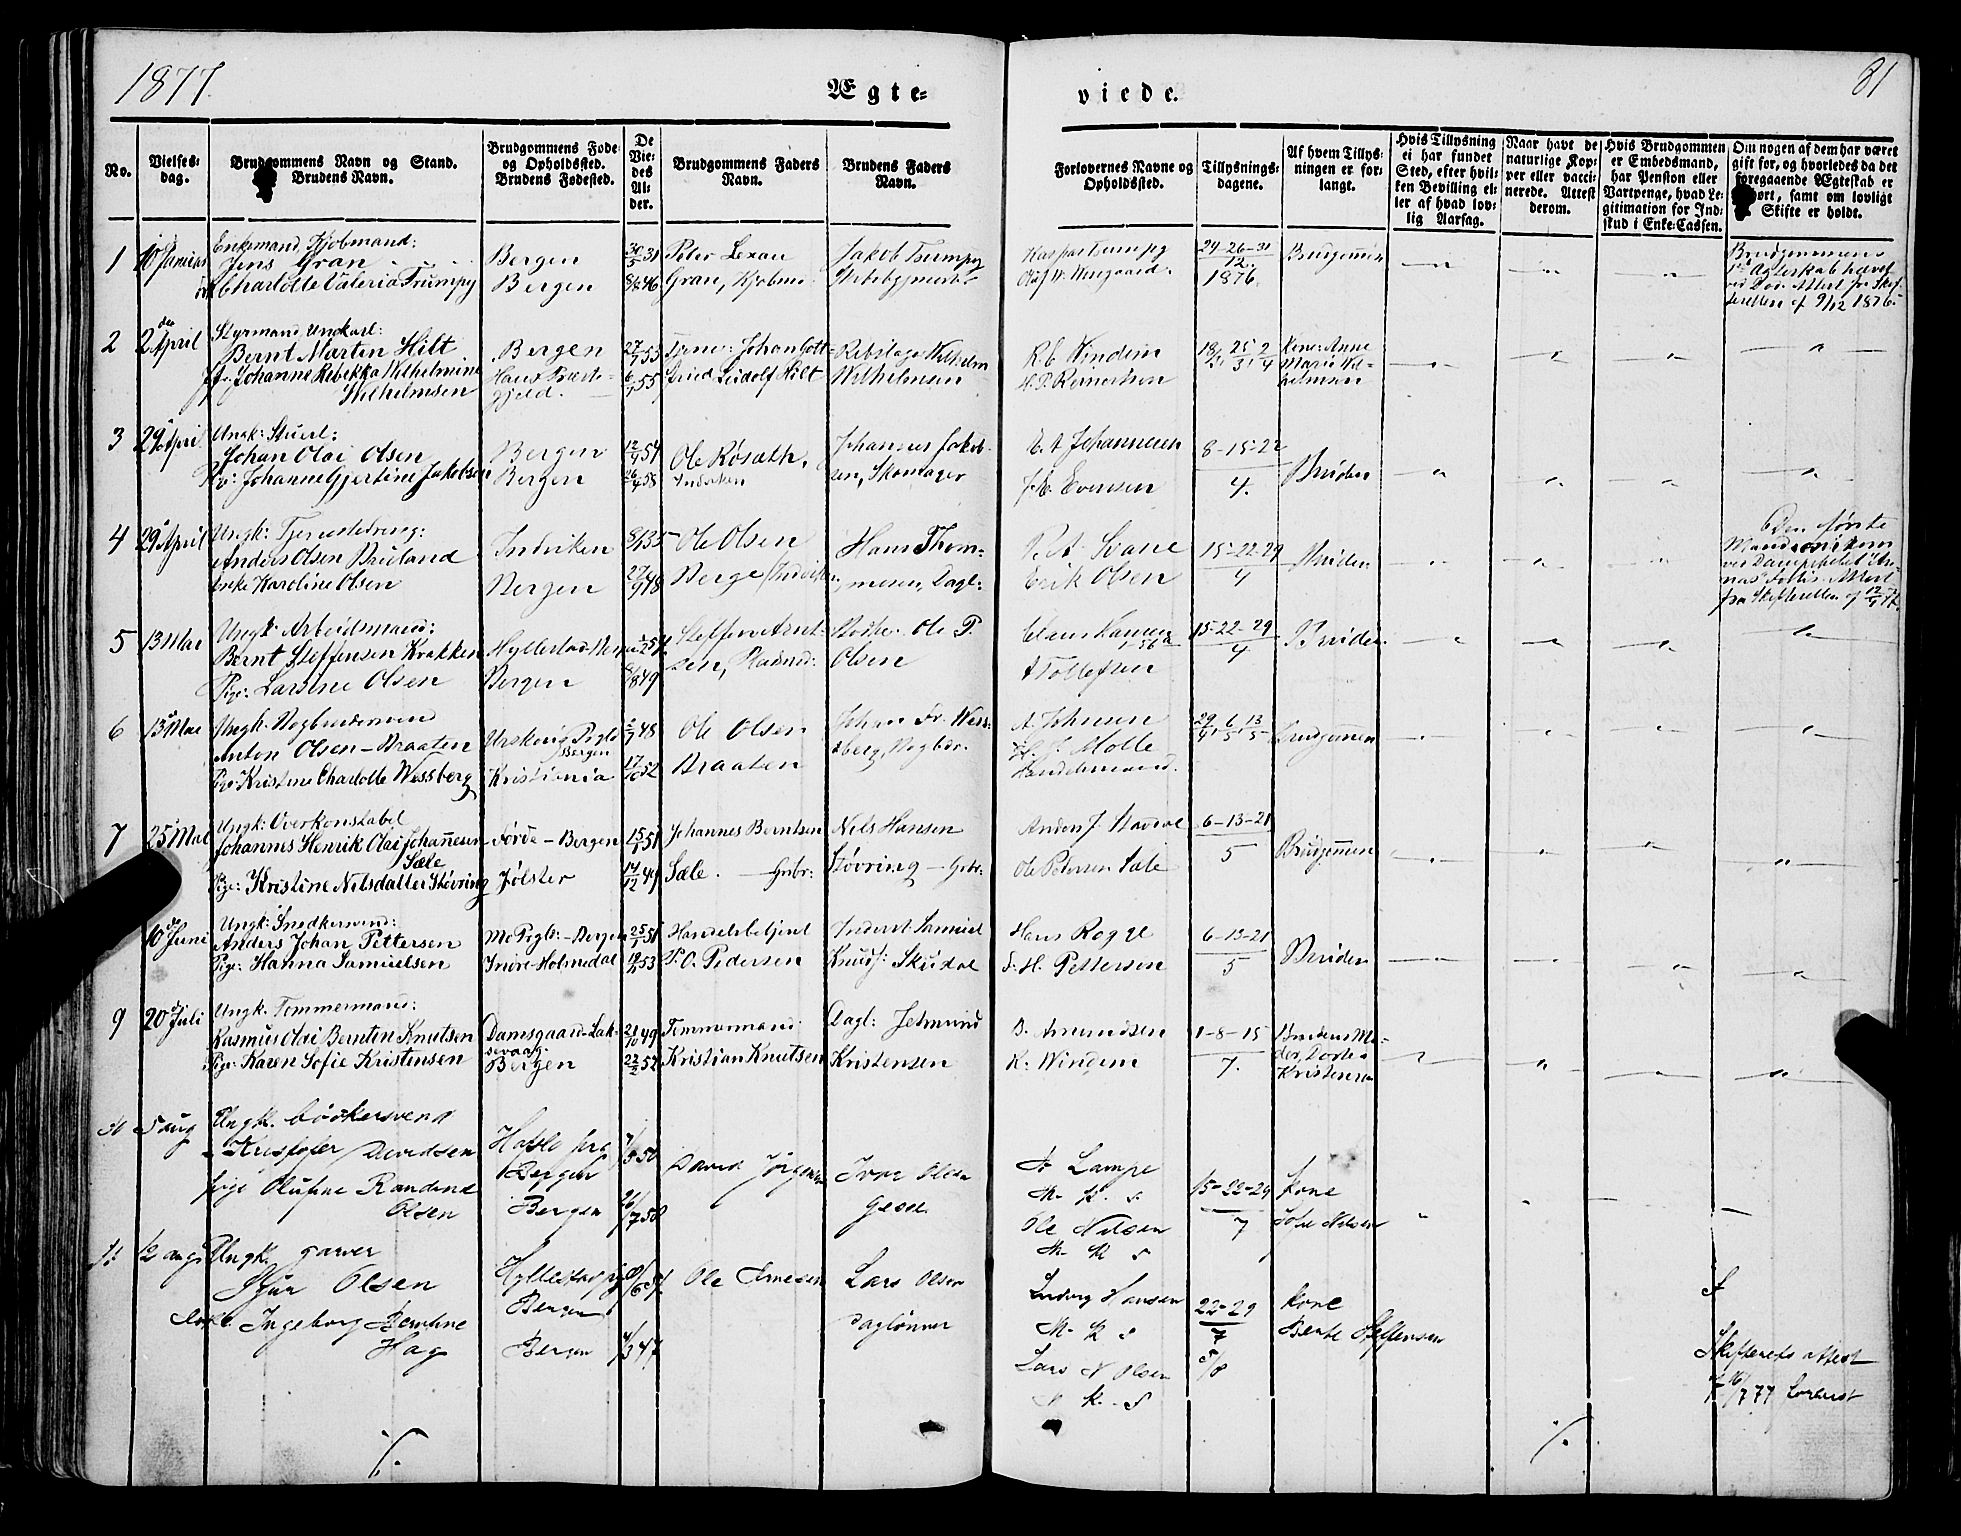 1877.
Ægte-
viede.
81
No.
Vielses-
dag.
Brudgommens Navn og Stand.
Brudens Navn.
Brudgommens Føde-
og Opholdssted.
Brudens Fødested.
De
Vie-
des
Al-
der.
Brudgommens Faders
Navn.
Brudens Faders
Navn.
Forlovernes Navne og
Opholdssted.
Tillysnings-
dagene.
Af hvem Tillys-
ningen er for-
langt.
Hvis Tillysning
ei har fundet
Sted, efter hvil-
ken Bevilling el-
ler af hvad lov-
lig Aarsag.
Naar havt de
naturlige Kop-
per eller vacci-
nerede. Attest
derom.
Hvis Brudgommen
er Embedsmand,
har Pension eller
Vartpenge, hvad Le-
gitimation for Ind-
skud i Enke-Cassen.
Om nogen af dem har været
gift før, og hvorledes da det
foregaaende Ægteskab er
samt om lovligt
Skifte er holdt.
1
Enkemand Kjøbmand:
Jens Gran
Charlotte Valeria Trumpy
Bergen
Bergen
30/5 31
8/8 46
Peter Lexau
Gran, Kjøbm:
Jakob Trumpy
Kaspar Trumpy
24-26-31
12.
1876.
Brudgommen
Brudgommens
1ste Ægteskab hævet
ved Død. Attest fr Skif-
teretten af 9/12 1876.
2
2den April
Styrmand Ungkarl:
Bernt Marten Hilt
Johanne Rebekka Wilhelmine
Wilhelmsen
Bergen
Haus Præste-
gjeld.
27/7 53
6/7 55
Johan Gott-
fried Ludolf Hilt
Rebslager Wilhelm
Wilhelmsen
R. C. Windem
18/3, 25/3, 2/4
Kone: Anne
Marie Wil-
helmsen
3
29 April
Ungk: Stuert:
Johan Olai Olsen
Pig: Johanne Gjertine Jakobsen
Bergen
Bergen
12/4 54
26/4 58
Ole Røsæth,
Indviken
Johannes Jakob-
sen, Skomager
E. A. Johannesen
Evensen
8-15-22
4.
Bruden
4
29 April
Ungk: Tjenestedreng:
Anders Olsen Brieland
Enke Karoline Olsen
Indviken
Bergen
27/9 48
Ole Olsen
Berge (Indviken)
Hans Thom-
mesen, Dagl:
P. A. Svane
Erik Olsen
15-22-29
4
Bruden
Den første
Mand omkom
ved Dampskibet
Attest
fra Skifteretten af 12/4 77.
5
13 Mai
Ungk: Arbeidsmand:
Bernt Steffensen Krakken
Pige: Larsine Olsen
Hyllestad-Bergen
Bergen
8/8 49
Steffen Arnt-
sen, Pladsmd:
Ole P.
Olsen
Claus Hansen
A Tollefsen
15-22-29
4
Bruden
6
13 Mai
Ungk. Bogbindersvend
Anton Olsen-Braaten
Pige: Kristine Charlotte Wessberg
Urskoug Pgld
Bergen
Kristiania
2/7 48
17/10 52
Ole Olsen
Braaten
Johan Fr. Wess-
berg, Bogbdr.
A. Johnsen
J. Molle
Handelsmand.
29/4, 6/5, 13/5
Brudgommen
7
25 Mai
Ungk: Overkonstabel
Johannes Henrik Olai Johannesen
Sæle
Pige: Kristine Nilsdatter Støvring
Førde - Bergen
Jølster
15/1 51
14/12 49
Johannes Berntsen
Sæle. - Grbr:
Nils Hansen
Støvring - Grbr:
Anders J. Stavdal
Ole Pedersen Sæle
6-13-21
5
Brudgommen
10de Juni
Ungk: Snedkersvend:
Anders Johan Pettersen
Pige: Hanna Samuelsen
Mo Pgld: - Bergen
Indre-Holmedal
25/1 51
Handelsbetjent
P. O. Pedersen
Inderst Samuel
Knuds: Skudal
Hans Rogge
S. H. Petterson
6-13-21
5
Bruden
9
20de Juli
Ungk. Tømmermand:
Rasmus Olai Berntin Knutsen
Pige: Karen Sofie Kristensen
Damsgaard-Lak-
sevaag:
Bergen
21/10 49
22/2 52
Tømmermand
Kristian Knutsen
Dagl: Jetmund
Kristensen
B. Amundsen
K. Windem
1-8-15
7.
Brudens Mo-
der, Dortea
Kristensen
10
5 aug
Ungk. bødkersvend
Kristofer Davidsen
pige Olufine Randine
Olsen
Hafslo prg
Bergen
Bergen
26/7 58
David Jørgensen
Iver Olsen
Lampe
M. K. S
Ole Nilsen
M. K S
15-22-29
7
Kone
Sofie Nilsen
11
12 aug
Ungk. garver
Sjur Olsen
Enke. Ingeborg Berntine
Hag
Hyllestad prg
Bergen
Bergen
4/3 47
Ole Arnesen
Lars Olsen
daglønner
Ludvig Hansen
M. K S
Lars N Olsen
K. S
22-29
7
5/8
Kone
Berte Steffensen
Skifterets attest